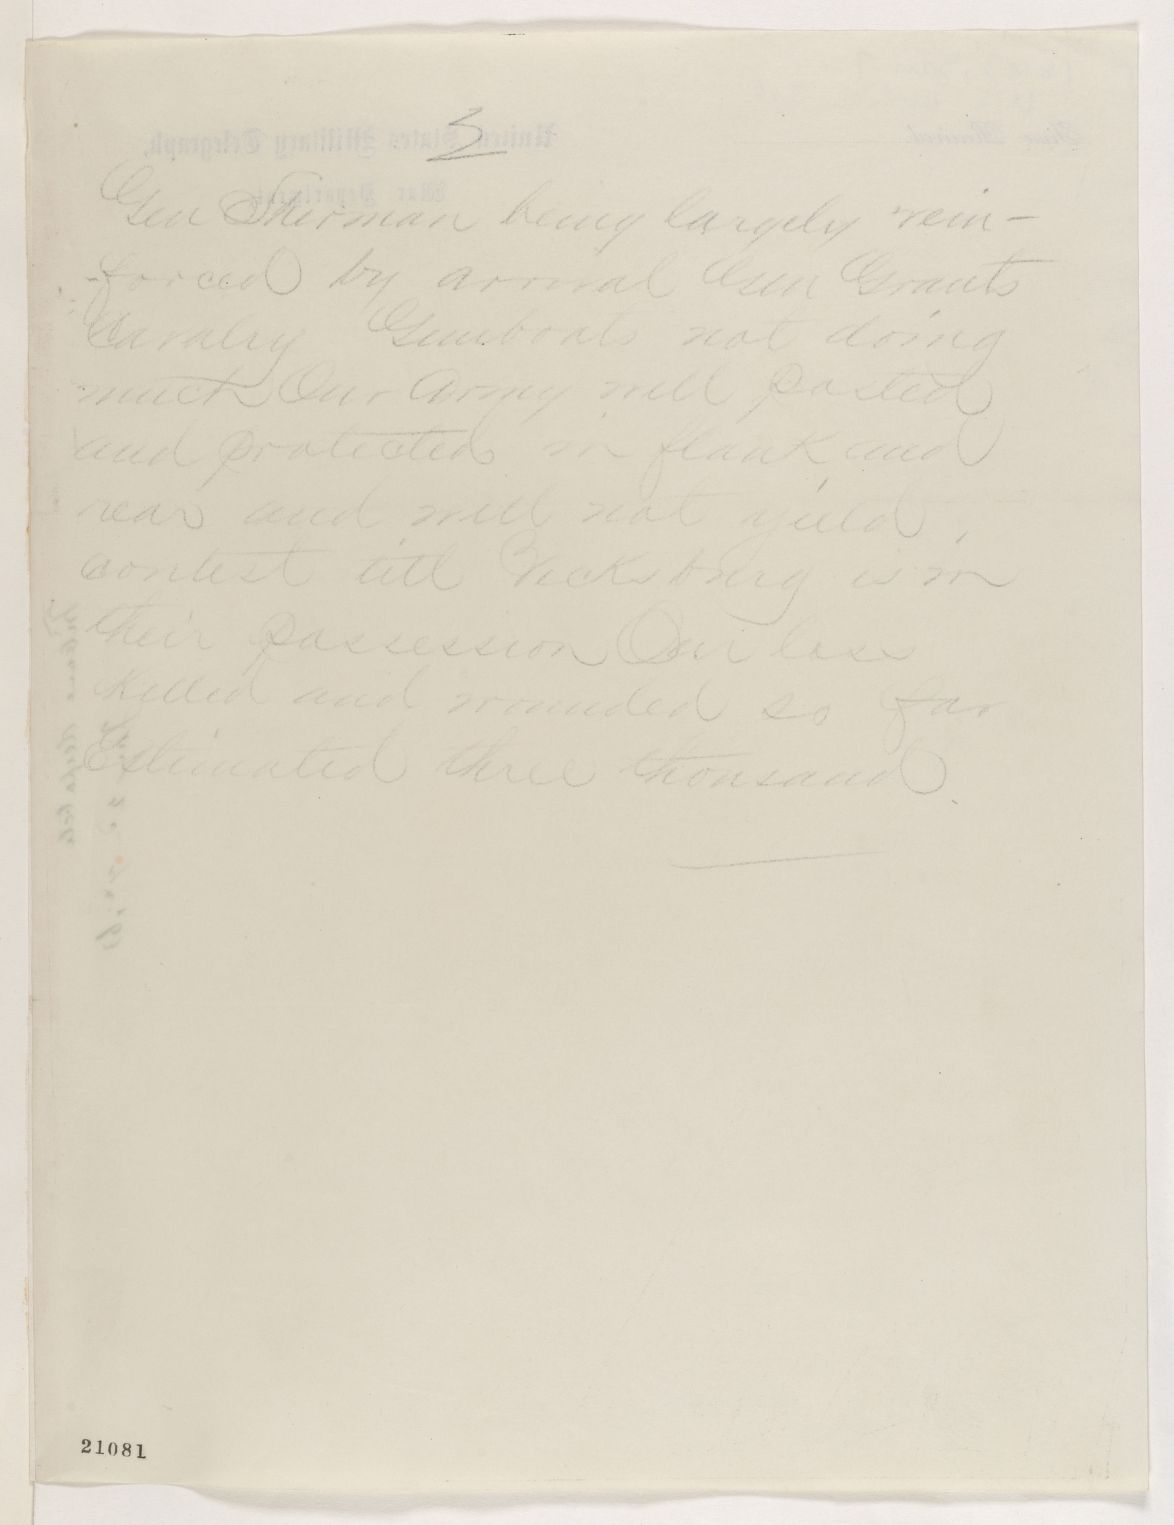 3
Gen Sherman being largely rein-
-forced by arrival Gen Grants
Cavalry Gunboats not doing
much Our Army well posted
and protected in flank and
rear and will not yield
contest till Vicksburg is in
their possession Our loss
killed and wounded so far
Estimated three thousand.
21081